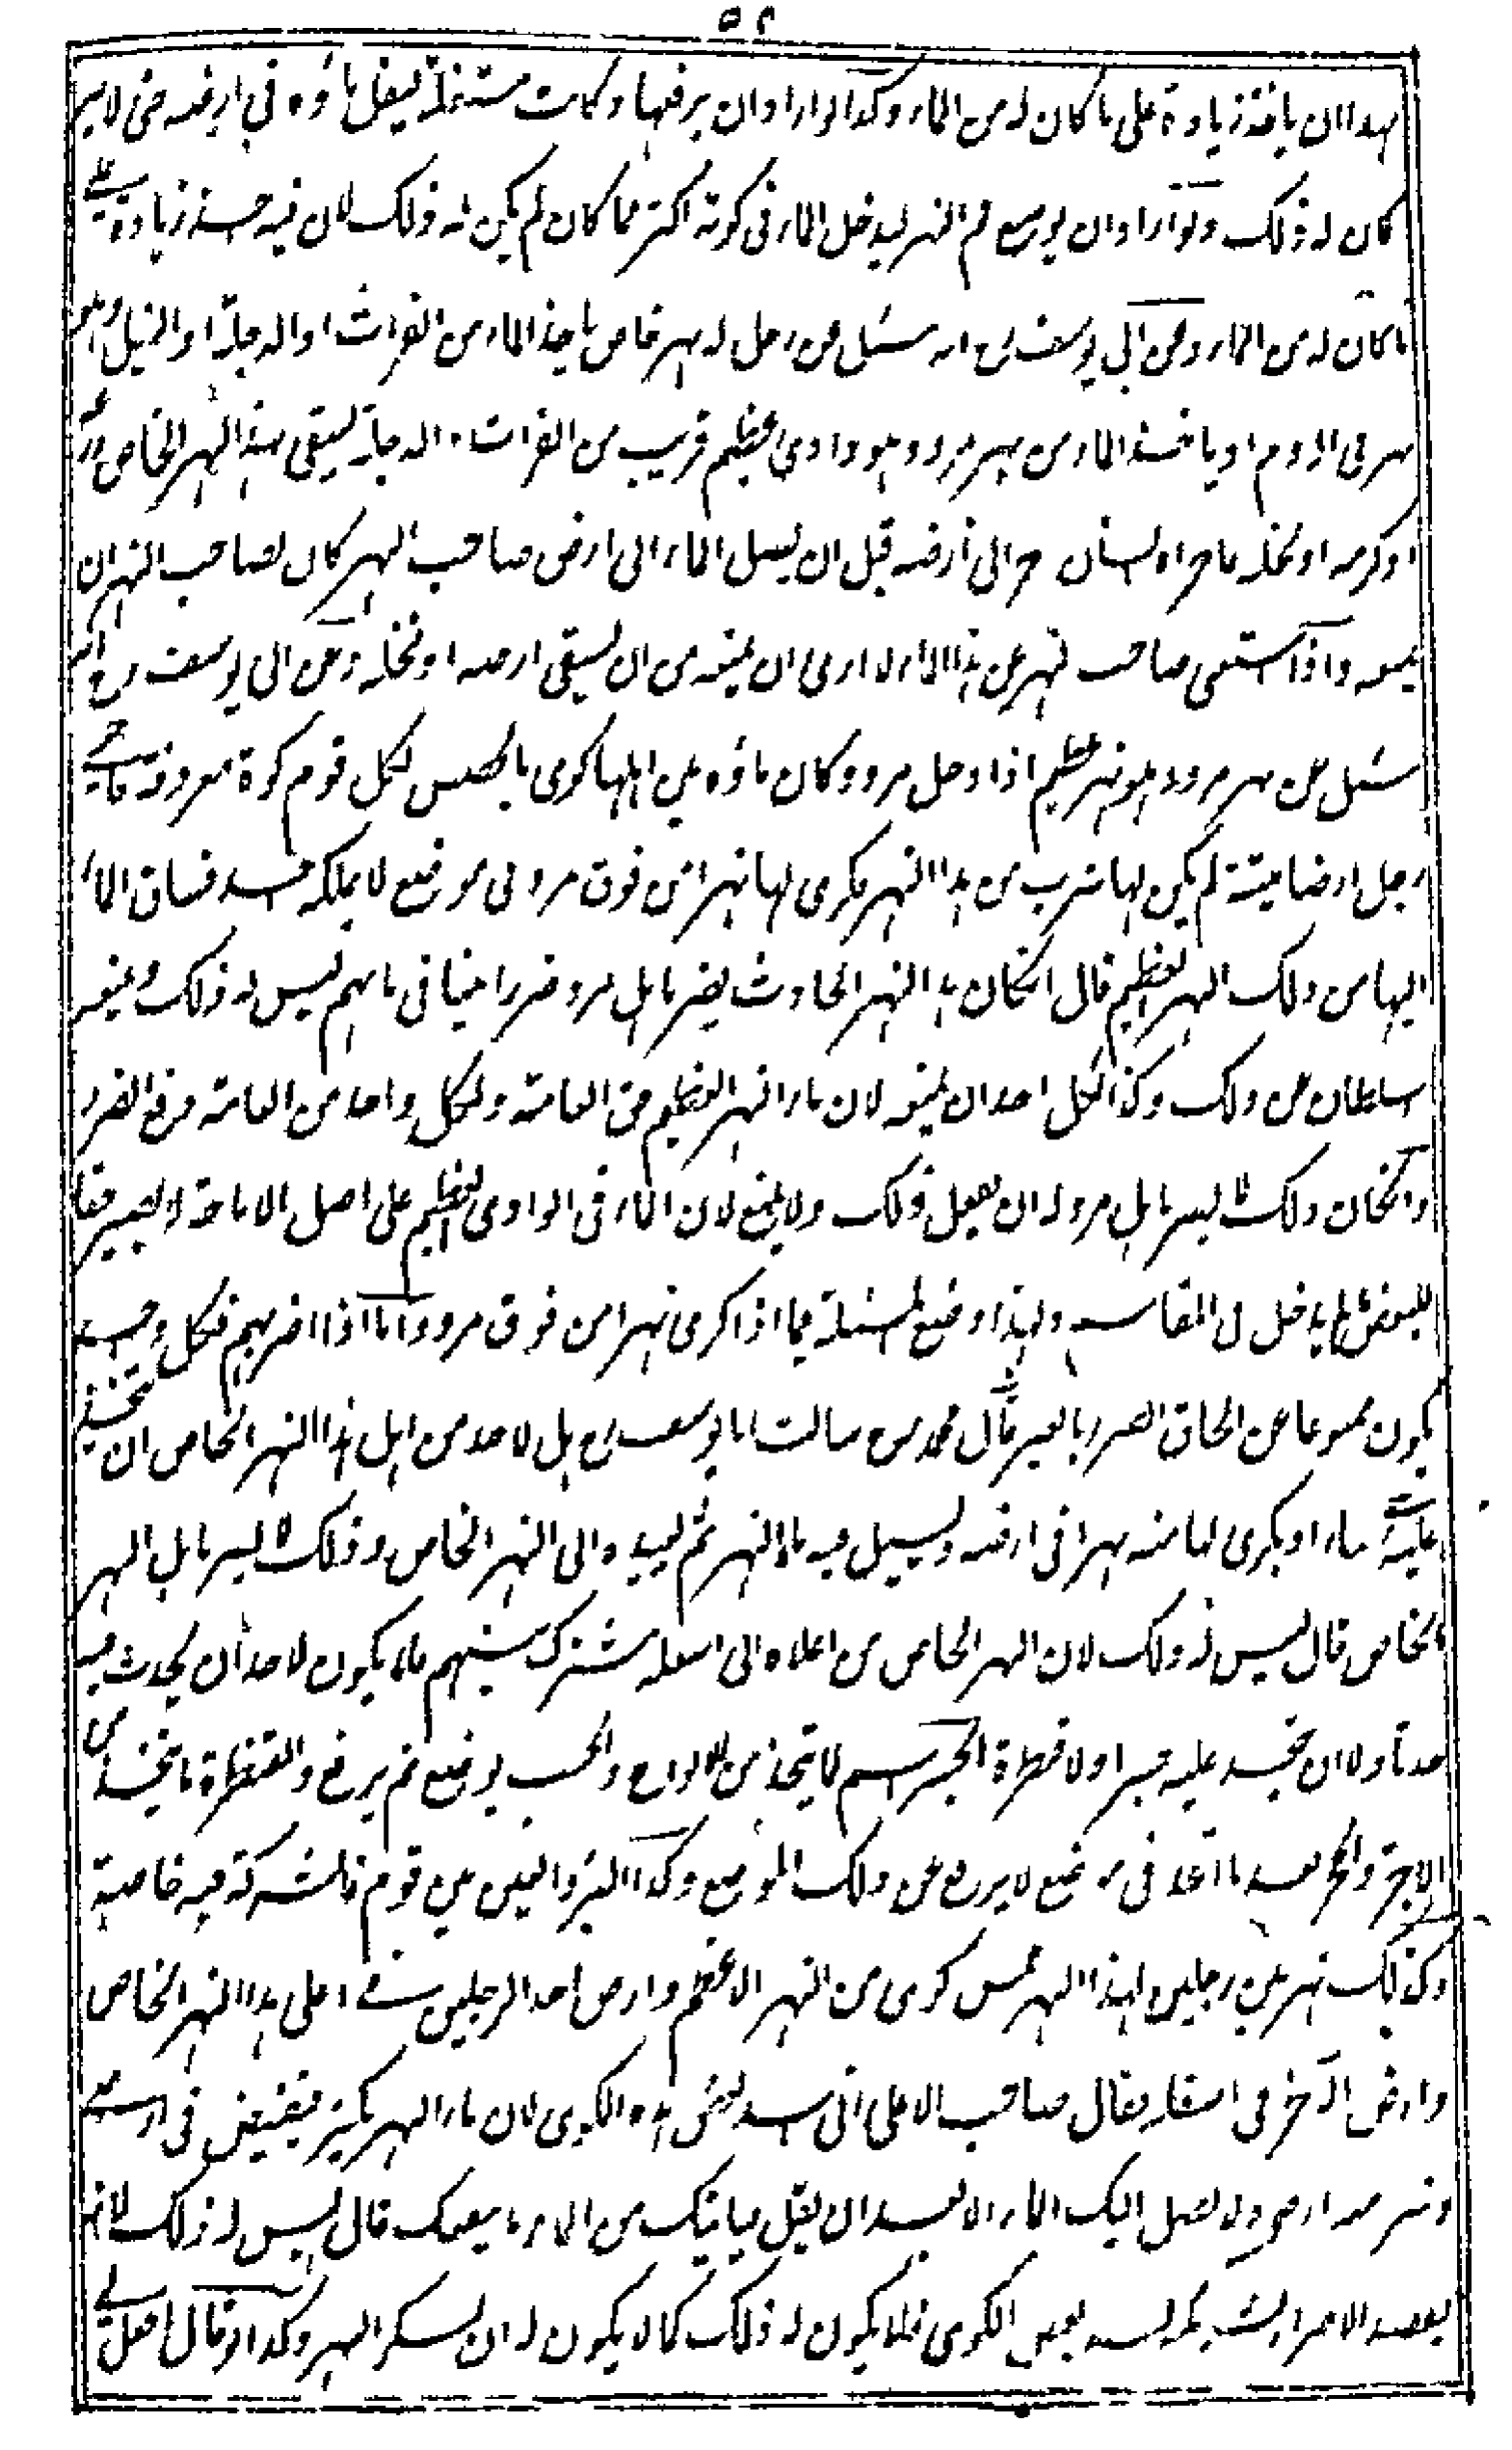 ٥٢
بهذا ان ياخذ زيادة على ما كان له من الماء وكذا لو اراد ان يرفعها وكانت متسفلة ليقل ماؤه في ارضه حتى لا
كان له ذلك ولو اراد ان يوسع فم النهر ليدخل الماء في كوته اكثر مما كان لم يكن له ذلك لان فيه اخذ زيادة على
ما كان له من الماء وعن ابي يوسف رح انه سئل عن رجل له نهر خاص ياخذ الماء من الفرات او الدجلة او النيل
نهر في الروم او ياخذ الماء من نهر مرو وهو وادي عظيم قريب من الفرات والدجلة ليسقى بهذا النهر الخاص
او كرمه او نخله فاجراه انسان الى ارضه قبل ان يصل الماء الى ارض صاحب النهر كان لصاحب النهر ان
يمنعه واذا استغنى صاحب النهر عن هذا الماء لا ارى ان يمنعه من ان يسقى ارضه او نخله وعن ابي يوسف رح انه
سئل عن نهر مرو وهو نهر عظيم اذا دخل مرو وكان ماؤه بين اهلها كوى بالحصص لكل قوم كوة معروفة فاحيى
رجل ارضا ميتة لم يكن لها شرب من هذا النهر فكرى لها نهرا من فوق مرو في موضع لا يملكه احد فساق الماء
اليها من ذلك النهر العظيم قال انكان هذا النهر الحادث يضر باهل مرو ضررا في مائهم ليس له ذلك ويمنعه
السلطان عن ذلك وكذا لكل احد ان يمنعه لان ماء النهر العظيم حق العامة ولكل واحد من العامة دفع الضرر
وانكان ذلك لا يضر باهل مرو له ان يفعل ذلك ولا يمنع لان الماء في الوادي العظيم على اصل الاباحة لا يصير حقا
للبعض ما لم يدخل في المقاسم ولهذا وضع المسئلة فيما اذا كرى نهرا من فوق مرو واما اذا اضر بهم فكل واحد
يكون ممنوعا عن الحاق الضرر بالغير قال محمد رح سالت ابا يوسف رح هل لاحد من اهل هذا النهر الخاص ان يتخذ
عليه ماء او يكرى لها منه نهرا في ارضه ويسيل فيه ماء النهر ثم يعيده الى النهر الخاص وذلك لا يضر باهل النهر
الخاص قال ليس له ذلك لان النهر الخاص من اعلاه الى اسفله مشترك بينهم فلا يكون لاحد ان يحدث فيه
حدثا ولا ان يتخذ عليه جسرا ولا قنطرة الجسر اسم لما يتخذ من الالواح والخشب يوضع ثم يرفع والقنطرة ما يتخذ من
الاجر والحجر بعد ما اتخذ في موضع لا يرفع عن ذلك الموضع وكذا البئر والعين بين قوم فالشركة فيه خاصة
وكذلك نهر بين رجلين لهذا النهر خمس كوى من النهر الاعظم وارض احد الرجلين في اعلى هذا النهر الخاص
وارض الآخر في اسفله فقال صاحب الاعلى اني اسد بعض هذه الكوى لان ماء النهر يكثر فيفيض في ارضي
ارضي ولا يصل اليك الماء الا بعد ان يقل فياتيك من الماء ما ينفعك قال ليس له ذلك لانه
يقصد الاضرار بشريكه بسد بعض الكوى فلا يكون له ذلك كما لا يكون له ان يسكر النهر وكذا لو قال اجعل لي